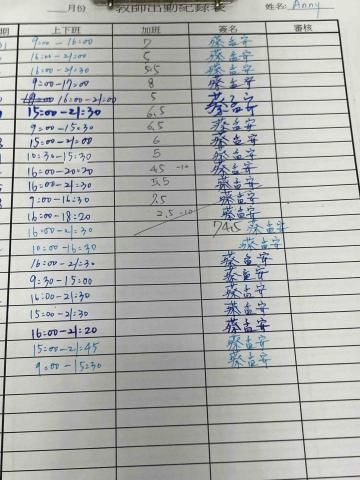 月份 教師出勤紀錄表 姓名: Anny
期 上下班 加班 簽名 審核
9:00-16:00 7 蔡孟安
16:00-21:00 5 蔡孟安
16:00-21:30 5.5 蔡孟安
9:00-17:00 8 蔡孟安
16:00-21:00 5 蔡孟安
15:00-21:30 6.5 蔡孟安
9:00-15:30 6.5 蔡孟安
15:00-21:00 6 蔡孟安
10:30-15:30 5 蔡孟安
16:00-20:20 4.5 -10 蔡孟安
16:00-21:30 5.5 蔡孟安
9:00-16:30 7.5 蔡孟安
16:00-18:20 2.5 -10 蔡孟安
16:00-21:30 74.5 蔡孟安
10:00-16:30 蔡孟安
16:00-21:30 蔡孟安
9:30-15:00 蔡孟安
16:00-21:30 蔡孟安
15:00-21:30 蔡孟安
16:00-21:20 蔡孟安
15:00-21:45 蔡孟安
9:00-15:30 蔡孟安